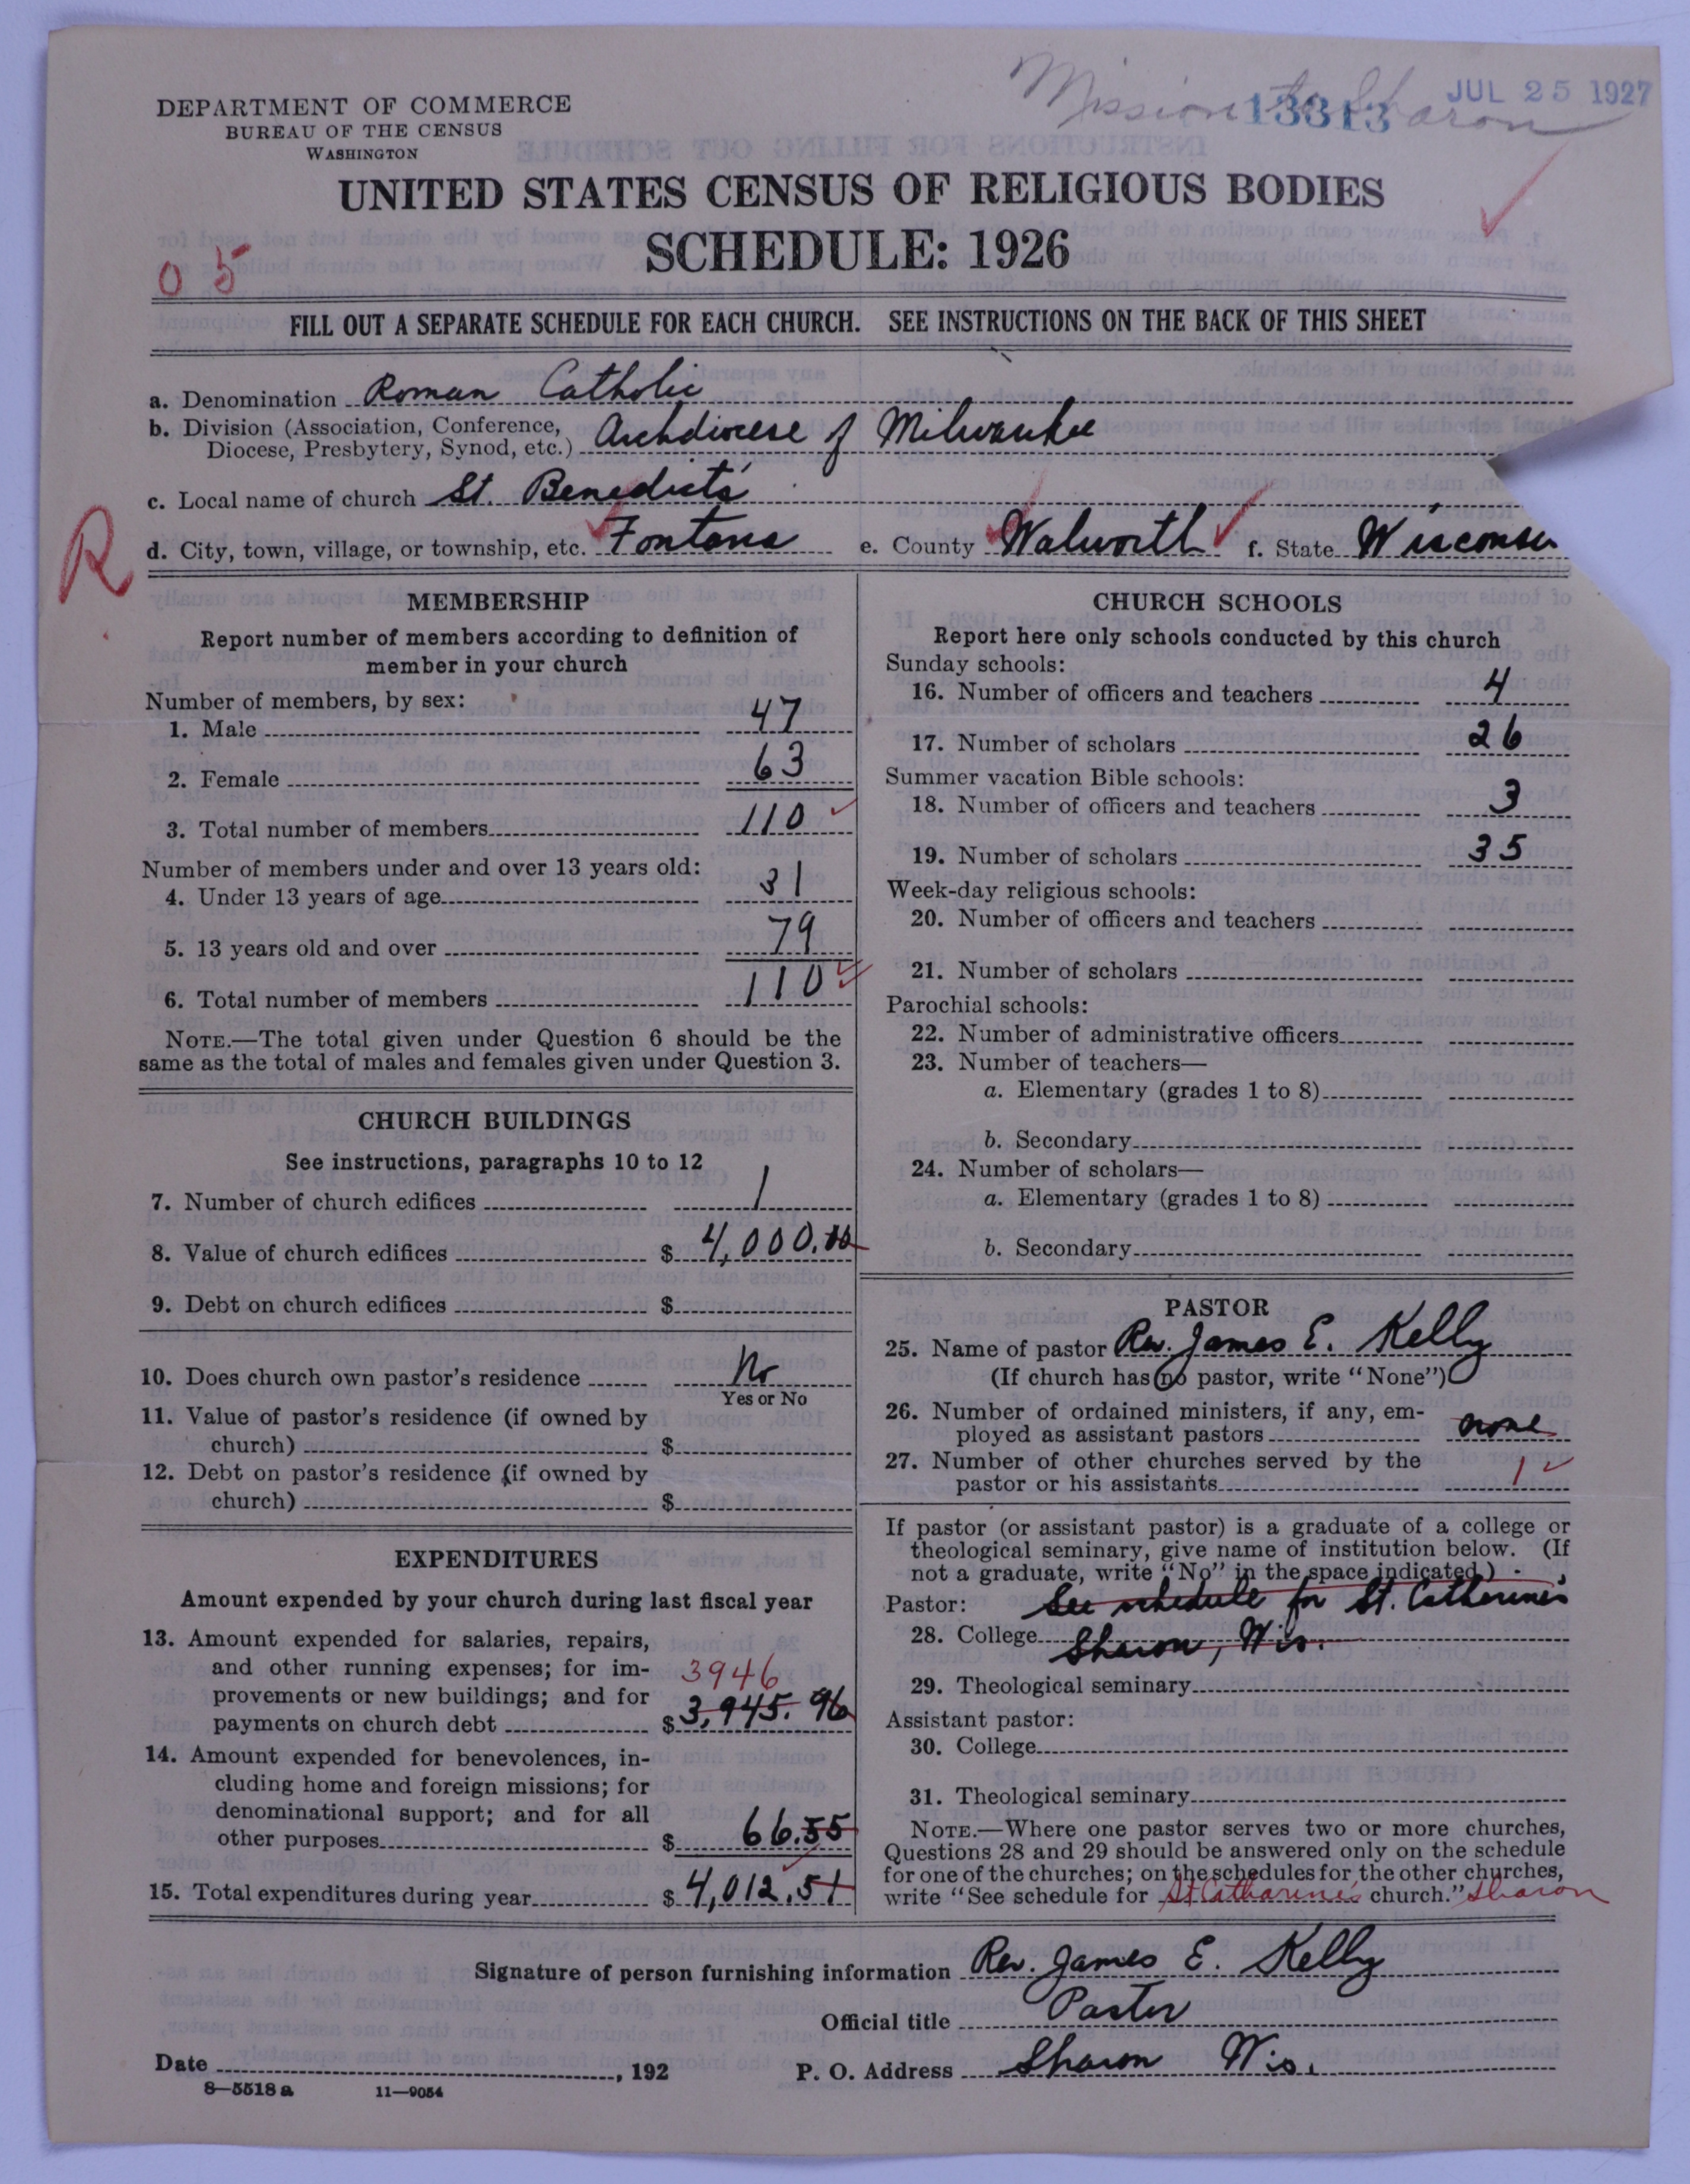 Mission to Sharon
13313
JUL 25 1927
DEPARTMENT OF COMMERCE
BUREAU OF THE CENSUS
WASHINGTON
UNITED STATES CENSUS OF RELIGIOUS BODIES
SCHEDULE: 1926
05
FILL OUT A SEPARATE SCHEDULE FOR EACH CHURCH. SEE INSTRUCTIONS ON THE BACK OF THIS SHEET
a. Denomination Roman Catholic
b. Division (Association, Conference,
Diocese, Presbytery, Synod, etc.) Archdiocese of Milwaukee
c. Local name of church St. Benedict's
R
d. City, town, village, or township, etc. Fontana e. County Walworth f. State Wisconsin
MEMBERSHIP
Report number of members according to definition of
member in your church
Number of members, by sex:
1. Male 47
2. Female 63
3. Total number of members 110
Number of members under and over 13 years old:
4. Under 13 years of age 31
5. 13 years old and over 79
6. Total number of members 110
NOTE.—The total given under Question 6 should be the
same as the total of males and females given under Question 3.
CHURCH BUILDINGS
See instructions, paragraphs 10 to 12
7. Number of church edifices 1
8. Value of church edifices $ 4,000.00
9. Debt on church edifices $
10. Does church own pastor's residence No
Yes or No
11. Value of pastor's residence (if owned by
church) $
12. Debt on pastor's residence (if owned by
church) $
EXPENDITURES
Amount expended by your church during last fiscal year
13. Amount expended for salaries, repairs,
and other running expenses; for im- 3946
provements or new buildings; and for
payments on church debt $ 3,945.96
14. Amount expended for benevolences, in-
cluding home and foreign missions; for
denominational support; and for all
other purposes $ 66.55
15. Total expenditures during year $ 4,012.51
CHURCH SCHOOLS
Report here only schools conducted by this church
Sunday schools:
16. Number of officers and teachers 4
17. Number of scholars 26
Summer vacation Bible schools:
18. Number of officers and teachers 3
19. Number of scholars 35
Week-day religious schools:
20. Number of officers and teachers
21. Number of scholars
Parochial schools:
22. Number of administrative officers
23. Number of teachers—
a. Elementary (grades 1 to 8)
b. Secondary
24. Number of scholars—
a. Elementary (grades 1 to 8)
b. Secondary
PASTOR
25. Name of pastor Rev. James E. Kelly
(If church has no pastor, write "None")
26. Number of ordained ministers, if any, em-
ployed as assistant pastors none
27. Number of other churches served by the
pastor or his assistants 1
If pastor (or assistant pastor) is a graduate of a college or
theological seminary, give name of institution below. (If
not a graduate, write "No" in the space indicated.)
Pastor: See schedule for St. Catherine's
28. College Sharon, Wis.
29. Theological seminary
Assistant pastor:
30. College
31. Theological seminary
NOTE.—Where one pastor serves two or more churches,
Questions 28 and 29 should be answered only on the schedule
for one of the churches; on the schedules for the other churches,
write "See schedule for St Catharine's church." Sharon
Signature of person furnishing information Rev. James E. Kelly
Official title Pastor
Date , 192 P. O. Address Sharon Wis.
8—5518 a 11—9054